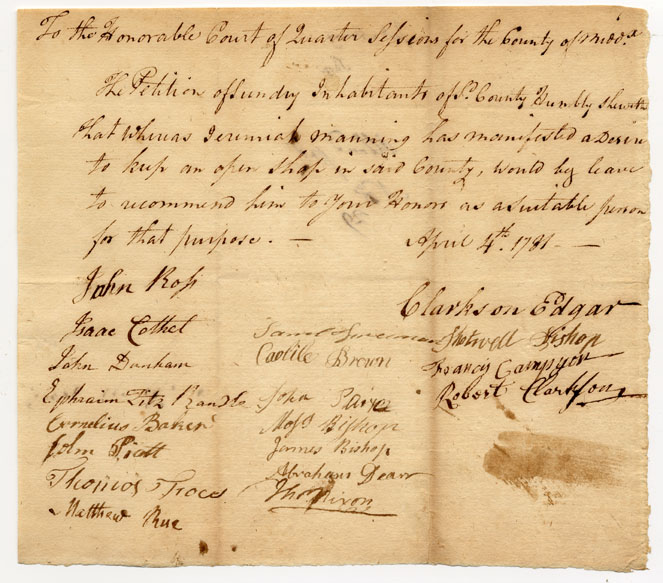 To the Honorable Court of Quarter Sessions for the County of Midd.x
The Petition of Sundry Inhabitants of s.d County Humbly sheweth
that Whereas Jeremiah manning has manifested a Desire
to keep an open shop in said County, would beg leave
to recommend him to Your Honors as a suitable person
for that purpose. — April 4th. 1781 —
John Ross
Isaac Cothet
John Dunham
Ephraim Fitz Randle
Cornelius
John Pratt
Thomas
Matthew Rue
Saml
Carlile Brown
John
Moss Bishop
James Bishop
Abraham
Tho Nixon
Clarkson Edgar
Shotwell Bishop
Francis
Robert Clarkson